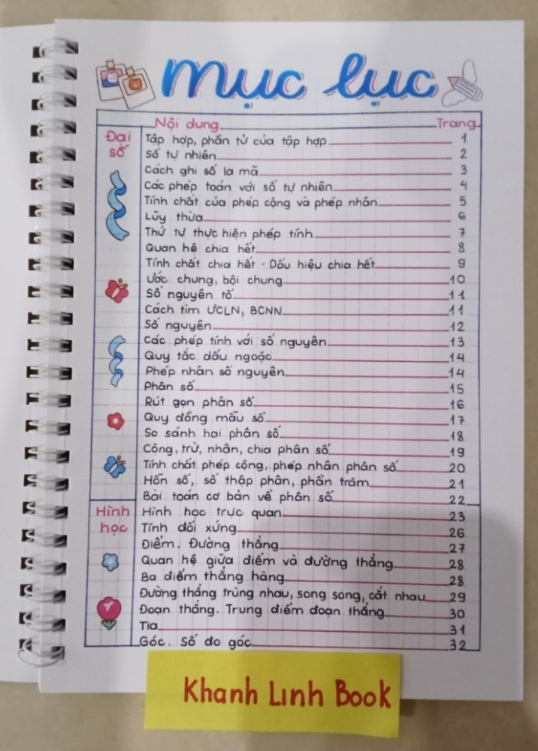 mục lục
Nội dung Trang
Đại số
Tập hợp, phần tử của tập hợp 1
Số tự nhiên 2
Cách ghi số la mã 3
Các phép toán với số tự nhiên 4
Tính chất của phép cộng và phép nhân 5
Lũy thừa 6
Thứ tự thực hiện phép tính 7
Quan hệ chia hết 8
Tính chất chia hết - Dấu hiệu chia hết 9
Ước chung, bội chung 10
Số nguyên tố 11
Cách tìm ƯCLN, BCNN 11
Số nguyên 12
Các phép tính với số nguyên 13
Quy tắc dấu ngoặc 14
Phép nhân số nguyên 14
Phân số 15
Rút gọn phân số 16
Quy đồng mẫu số 17
So sánh hai phân số 18
Cộng, trừ, nhân, chia phân số 19
Tính chất phép cộng, phép nhân phân số 20
Hỗn số, số thập phân, phần trăm 21
Bài toán cơ bản về phân số 22
Hình học
Hình học trực quan 23
Tính đối xứng 26
Điểm. Đường thẳng 27
Quan hệ giữa điểm và đường thẳng 28
Ba điểm thẳng hàng 28
Đường thẳng trùng nhau, song song, cắt nhau 29
Đoạn thẳng. Trung điểm đoạn thẳng 30
Tia 31
Góc. Số đo góc 32
Khanh Linh Book